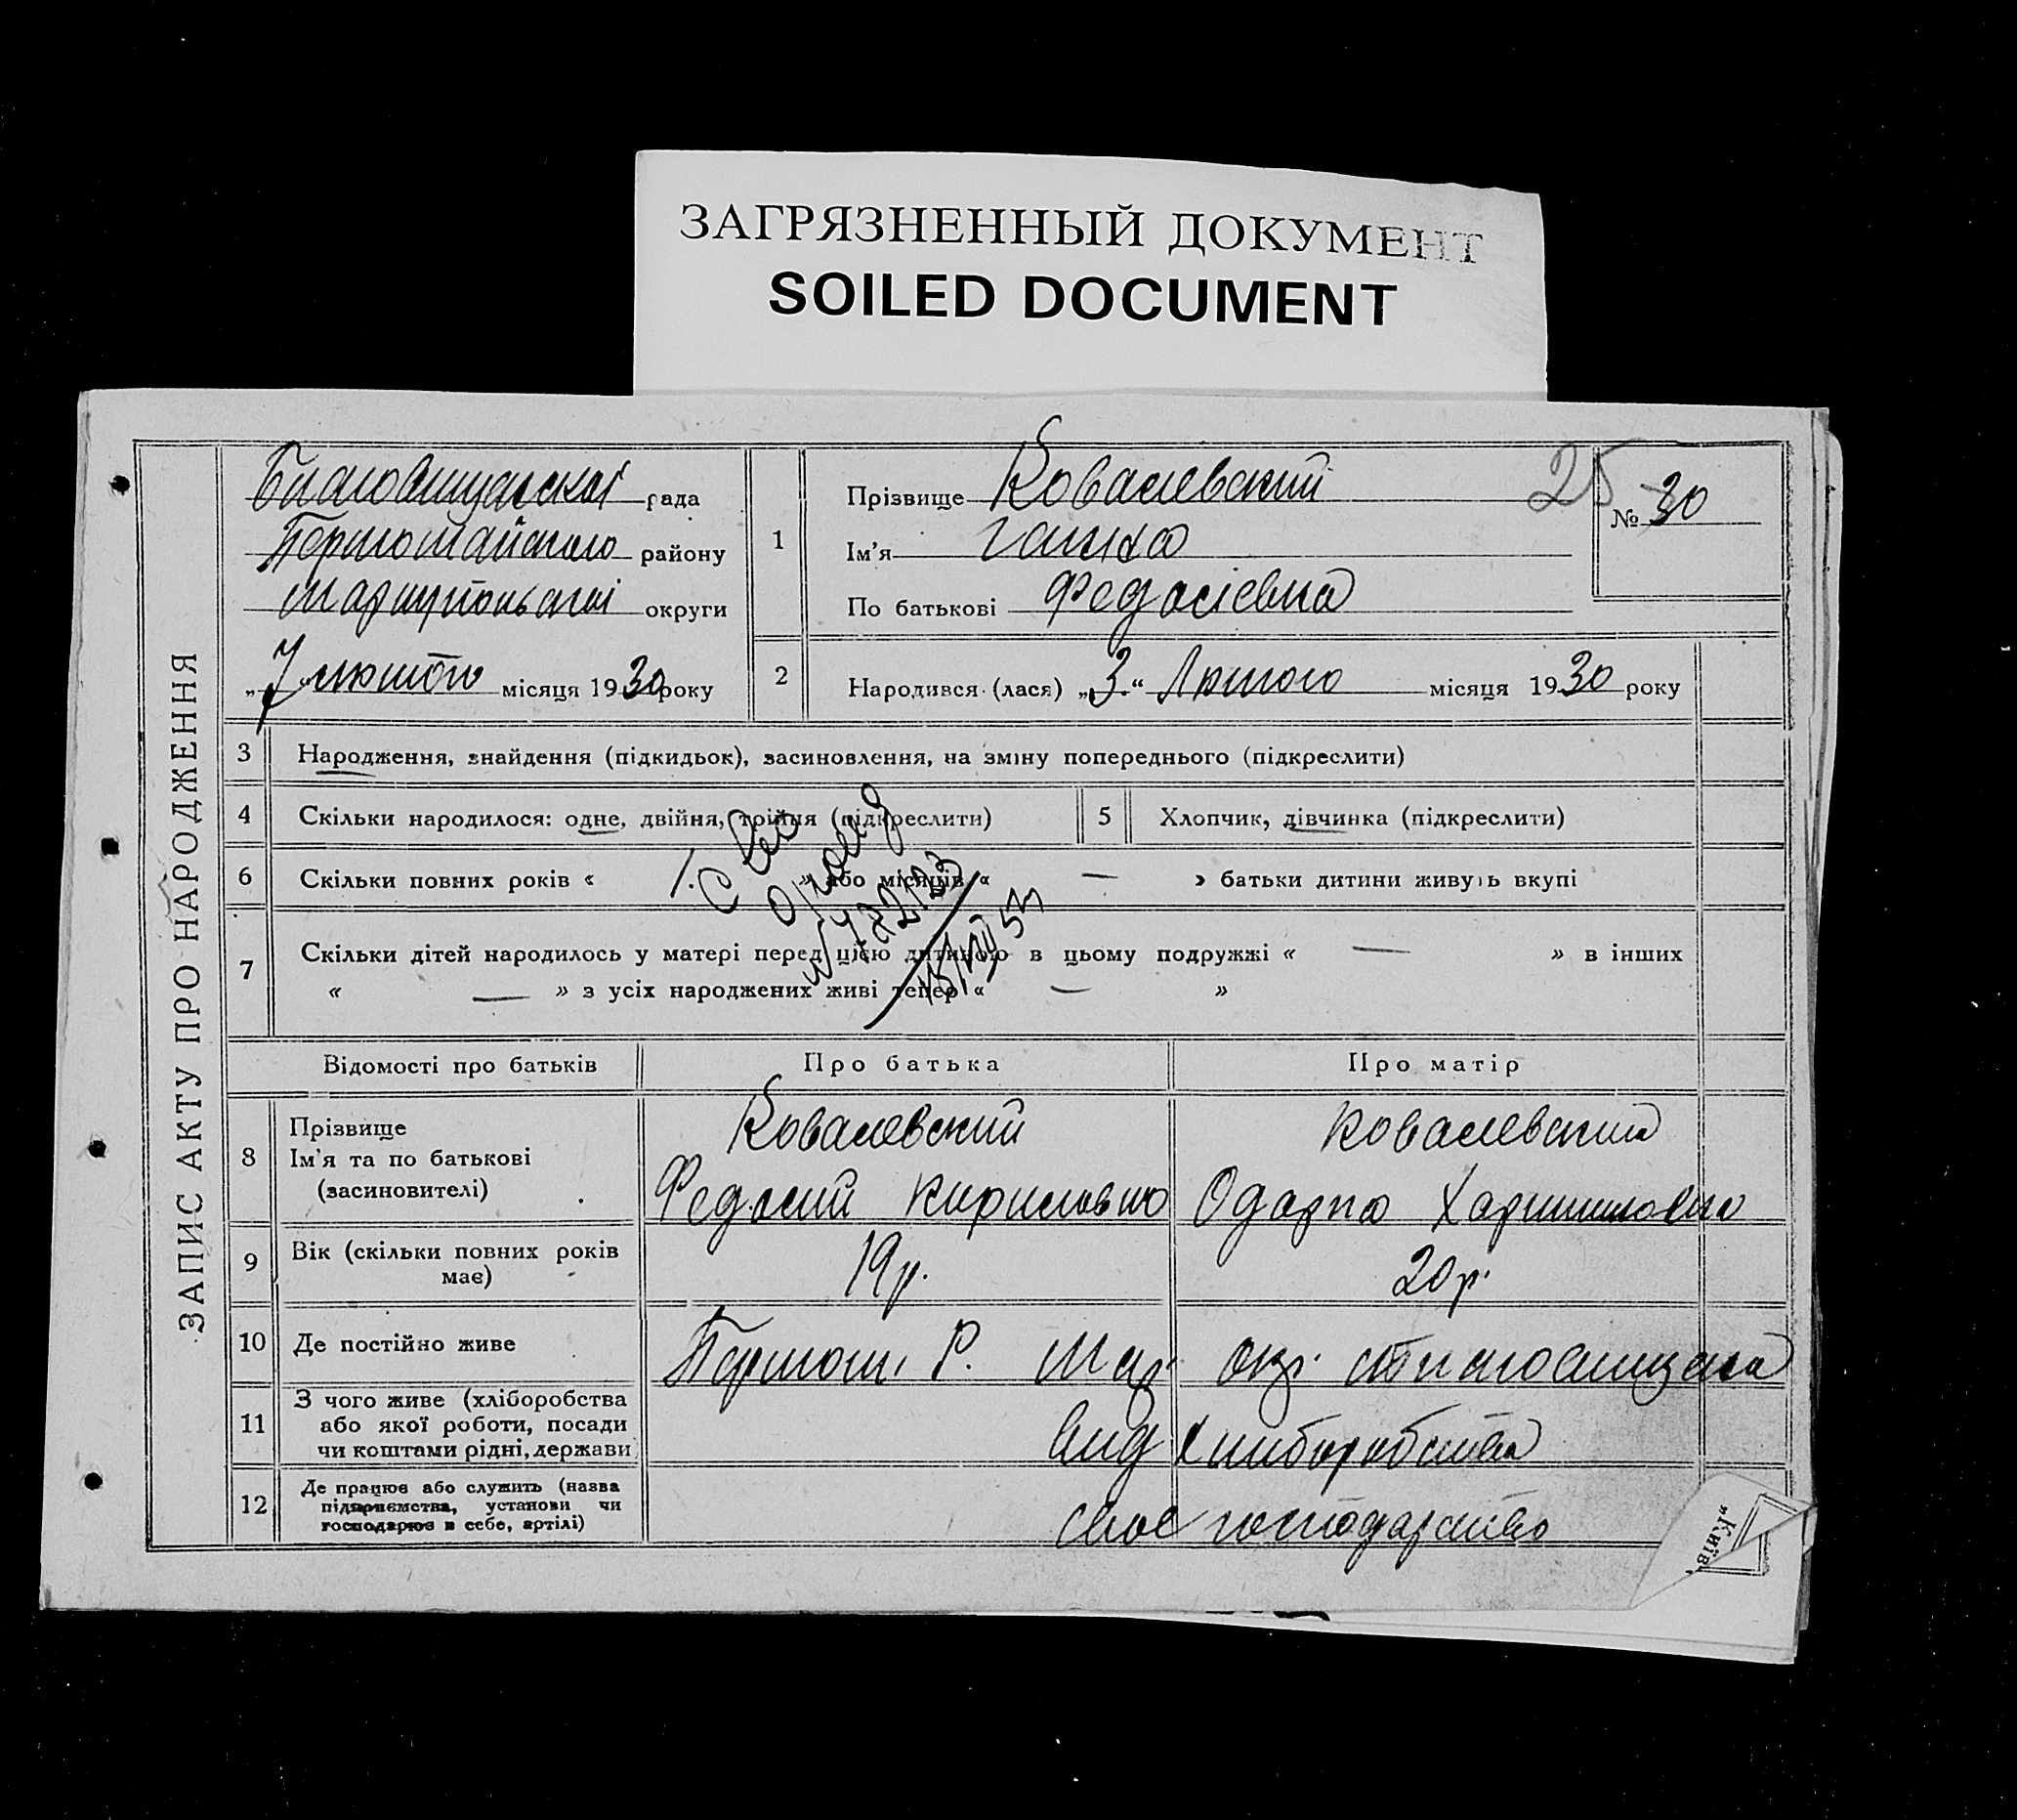 ЗАГРЯЗНЕННЫЙ ДОКУМЕНТ
SOILED DOCUMENT
ЗАПИС АКТУ ПРО НАРОДЖЕННЯ
рада
району
округи
„7“ лютого місяця 1930 року
1
Прізвище Ковалевский
Ім'я Ганна
По батькові Федосіевна
25
№ 30
2
Народився (лася) „3.“ Лютого місяця 1930 року
3 Народження, знайдення (підкидьок), засиновлення, на зміну попереднього (підкреслити)
4 Скільки народилося: одне, двійня, трійня (підкреслити)
5 Хлопчик, дівчинка (підкреслити)
6 Скільки повних років « 1. » або місяців « — » батьки дитини живуть вкупі
7 Скільки дітей народилось у матері перед цією дитиною в цьому подружжі « — » в інших
« — » з усіх народжених живі тепер « — »
Відомості про батьків
Про батька
Про матір
8
Прізвище
Ім'я та по батькові
(засиновителі)
Ковалевский
Федосий Кирилович
Ковалевския
Одарка
9
Вік (скільки повних років
має)
19 р.
20 р.
10 Де постійно живе
Р. Мар. окр.
11
З чого живе (хліборобства
або якої роботи, посади
чи коштами рідні, держави
вид хлиборобства
12
Де працює або служить (назва
підприємства, установи чи
господарює в себе, артілі)
свое господарство
„Київ